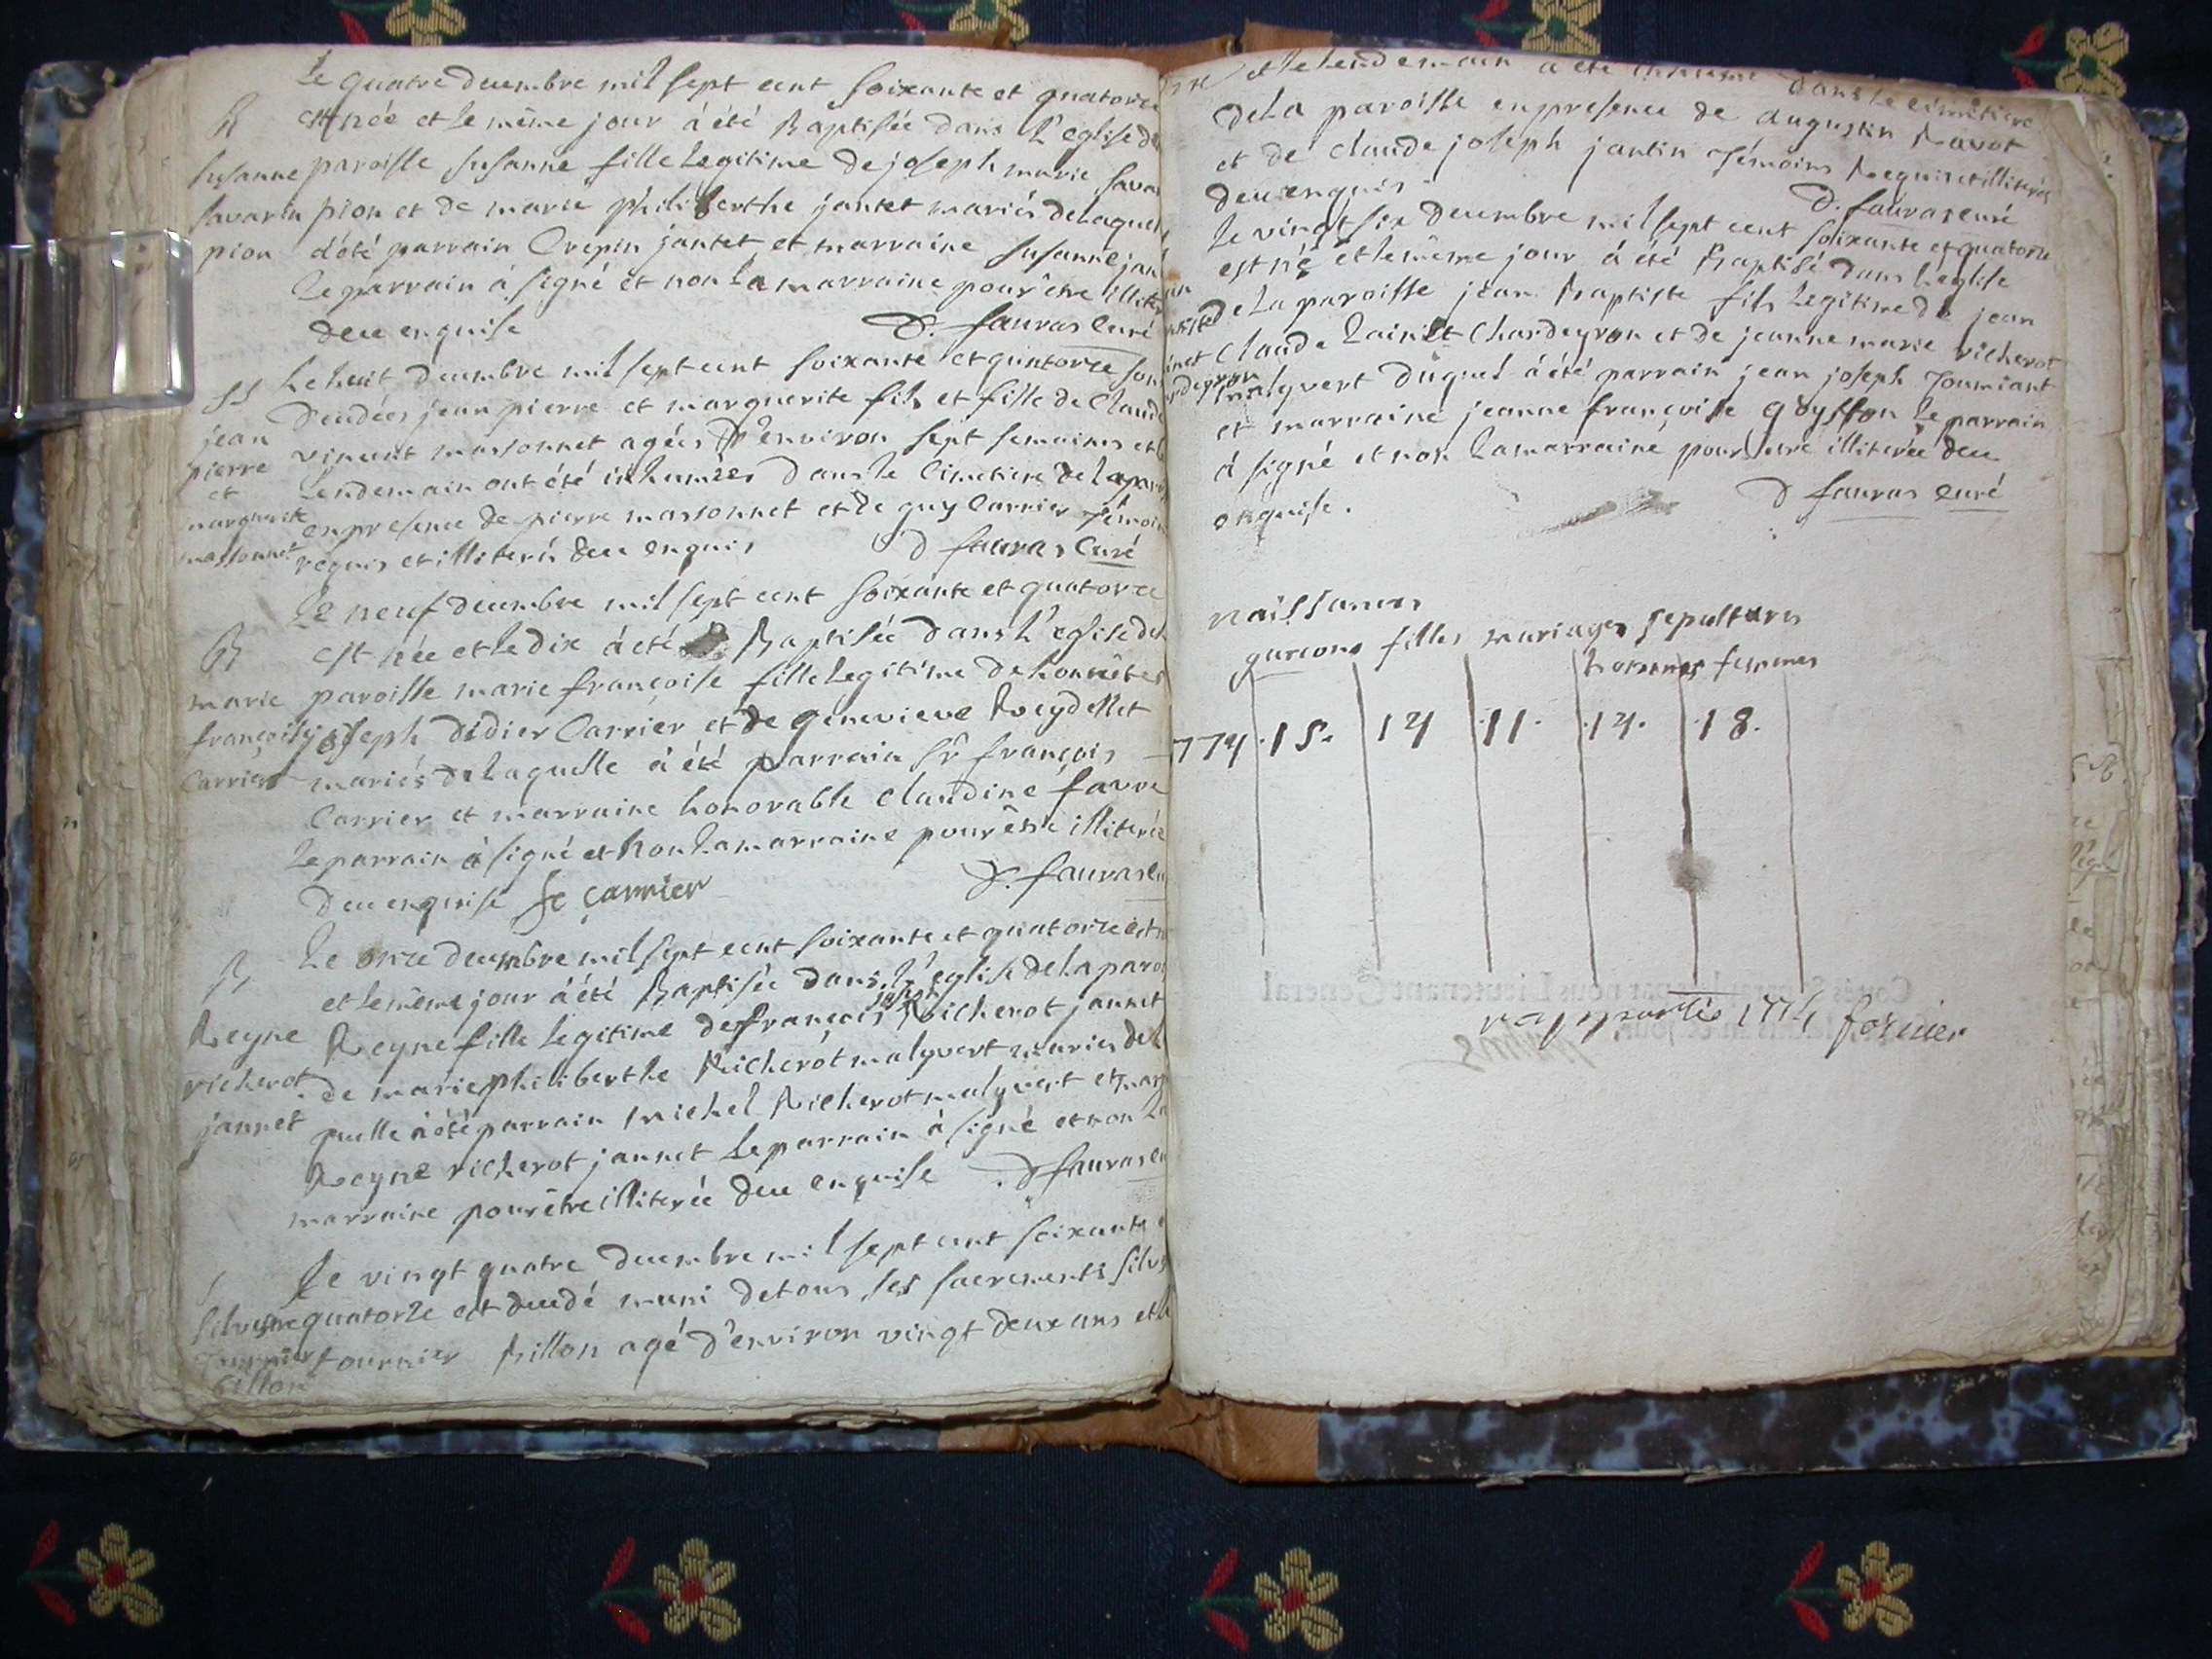 Le quatre decembre mil sept cent soixante et quatorze
B est née et le même jour à été Baptisée dans L'eglise de
susanne paroisse susanne fille legitime de joseph marie savar
savarin pion et de marie philiberthe jantet mariés de laquelle
pion a été parrain Crepin jantet et marraine susanne jan
le parrain à signé et non la marraine pour être illite
deu enquise D. fauras Curé
SS Le huit decembre mil sept cent soixante et quatorze son
jean decedées jean pierre et marguerite fils et fille de Claude
pierre vincent massonnet agées d'environ sept semaines et le
et lendemain ont été inhumées dans le Cimetiere de la paroi
marguerite en presence de pierre massonnet et de guy Carrier témoin
massonnet requis et illiterés deu enquis D fauras Curé
Le neuf decembre mil sept cent soixante et quatorze
B est née et le dix à été Baptisée dans L'eglise de
marie paroisse marie françoise fille legitime de honnêtes
françoise joseph didier Carrier et de genevieve Reydellet
Carrier mariés de laquelle à été parrain Sr françois
Carrier et marraine honorable Claudine favre
Le parrain à signé et non La marraine pour être illiterée
deu enquise fc carrier D. fauras Cu
B Le onze decembre mil sept cent soixante et quatorze est n
et le même jour à été Baptisée dans L'eglise de la paroi
Reyne Reyne fille legitime de françois joseph Richerot jannet
richerot de marie philiberthe Richerot malyvert mariés de l
jannet quelle à été parrain michel Richerot malyvert et mar
Reyne richerot jannet Le parrain à signé et non La
marraine pour être illiterée deu enquise D fauras Cu
S Le vingt quatre decembre mil sept cent soixante
silvestre quatorze est decedé muni de tous ses sacrements silv
tournier tournier Billon agé d'environ vingt deux ans et l
billon
et le lendemain a été inhumé dans le cimitiere
de La paroisse en presence de augustin Ravot
et de Claude joseph jantin témoins Requis et illiterés
deu enquis D. fauras curé
Le vingt six decembre mil sept cent soixante et quatorze
est né et le même jour à été Baptisé dans L'eglise
de La paroisse jean Baptiste fils legitime de jean
Claude Lainet Chardeyron et de jeanne marie richerot
malyvert duquel à été parrain jean joseph
et marraine jeanne françoise le parrain
à signé et non La marraine pour être illiterée deu
enquise. D fauras curé
naissances
garcons filles mariages sepultures
hommes femmes
774 15. 14 11. 14. 18.
1774